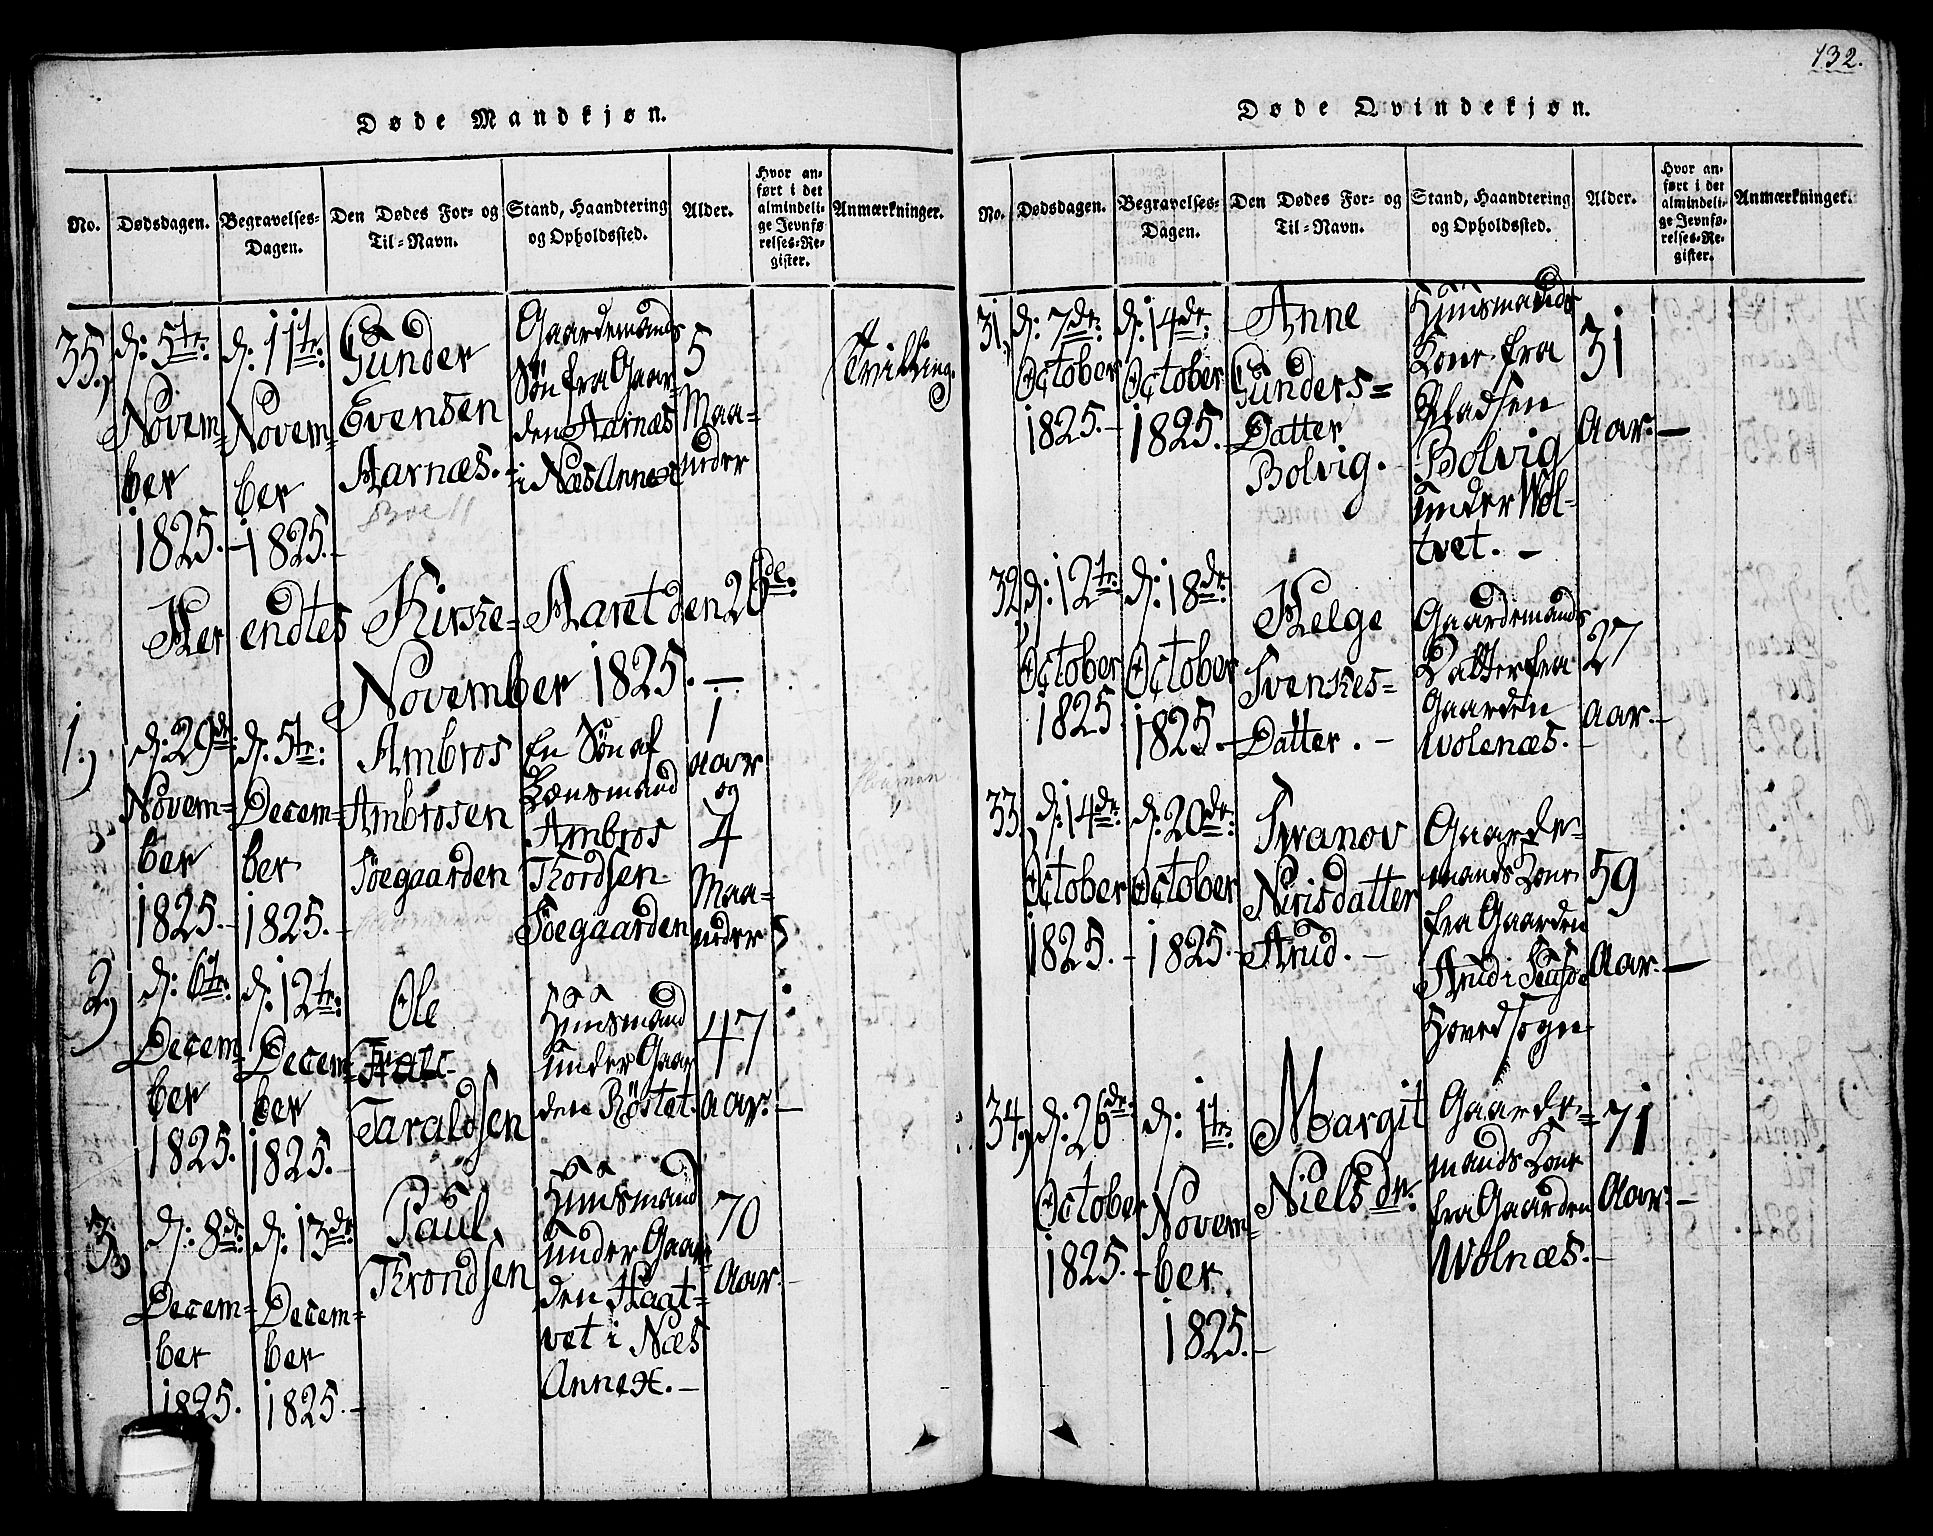 132.
Døde Mandkjøn.
No. Dødsdagen. Begravelses-Dagen. Den Dødes For- og Til-Navn. Stand, Haandtering og Opholdssted. Alder. Hvor anført i det almindelige Jevnførelses-Register. Anmærkninger.
35.) d: 5te: Novem=
ber
1825.
d: 11te:
Novem=
ber
1825.
Gunder
Evensen
Aarnæs.
Gaardemands
Søn fra Gaar=
den Aarnæs
i Næs Annex
5
Maa=
neder
Tvilling.
Her endtes Kirke-Aaret den 26de.
November 1825.
1.) d: 29de:
Novem=
ber
1825.
d: 5te:
Decem=
ber
1825.
Ambros
Ambrosen
Söegaarden
En Søn af
Lænsmand
Ambros
Thordsen
Söegaarden
1
aar
og
4
Maa=
neder
2.) d: 6te:
Decem=
ber
1825.
d: 12te:
Decem=
ber
1825.
Ole
Taraldsen
Huusmand
under Gaar
den Röstet.
47
aar.
3.) d: 8de:
Decem=
ber
1825.
d: 13de:
Decem=
ber
1825.
Paul
Throndsen
Huusmand
under Gaar=
den Haat=
vet i Næs
Annex.
70
Aar.
Døde Qvindekjøn.
No. Dødsdagen. Begravelses-Dagen. Den Dødes For- og Til-Navn. Stand, Haandtering og Opholdssted. Alder. Hvor anført i det almindelige Jevnførelses-Register. Anmærkninger.
31.) d: 7de:
October
1825.
d: 14de:
October
1825.
Anne
Gunders=
Datter
Bolvig.
Huusmands
Kone fra
Pladsen
Bolvig
under Wol=
tvet.
31
Aar.
32.) d: 12te:
October
1825
d: 18de:
October
1825.
Helge
Svenkes=
Datter.
Gaardemands
Datter fra
Gaarden
Wolenæs.
27
aar.
33.) d: 14de:
October
1825.
d: 20de:
October
1825.
Svanov
Nirisdatter
Arud.
Gaarde=
mands Kone
fra Gaarden
Arud i
Hovedsogn
59
Aar.
34.) d: 26de:
October
1825.
d: 1te:
Novem=
ber
1825.
Margit
Nielsdr.
Gaarde=
mands Kone
fra Gaarden
Wolnæs.
71
Aar.